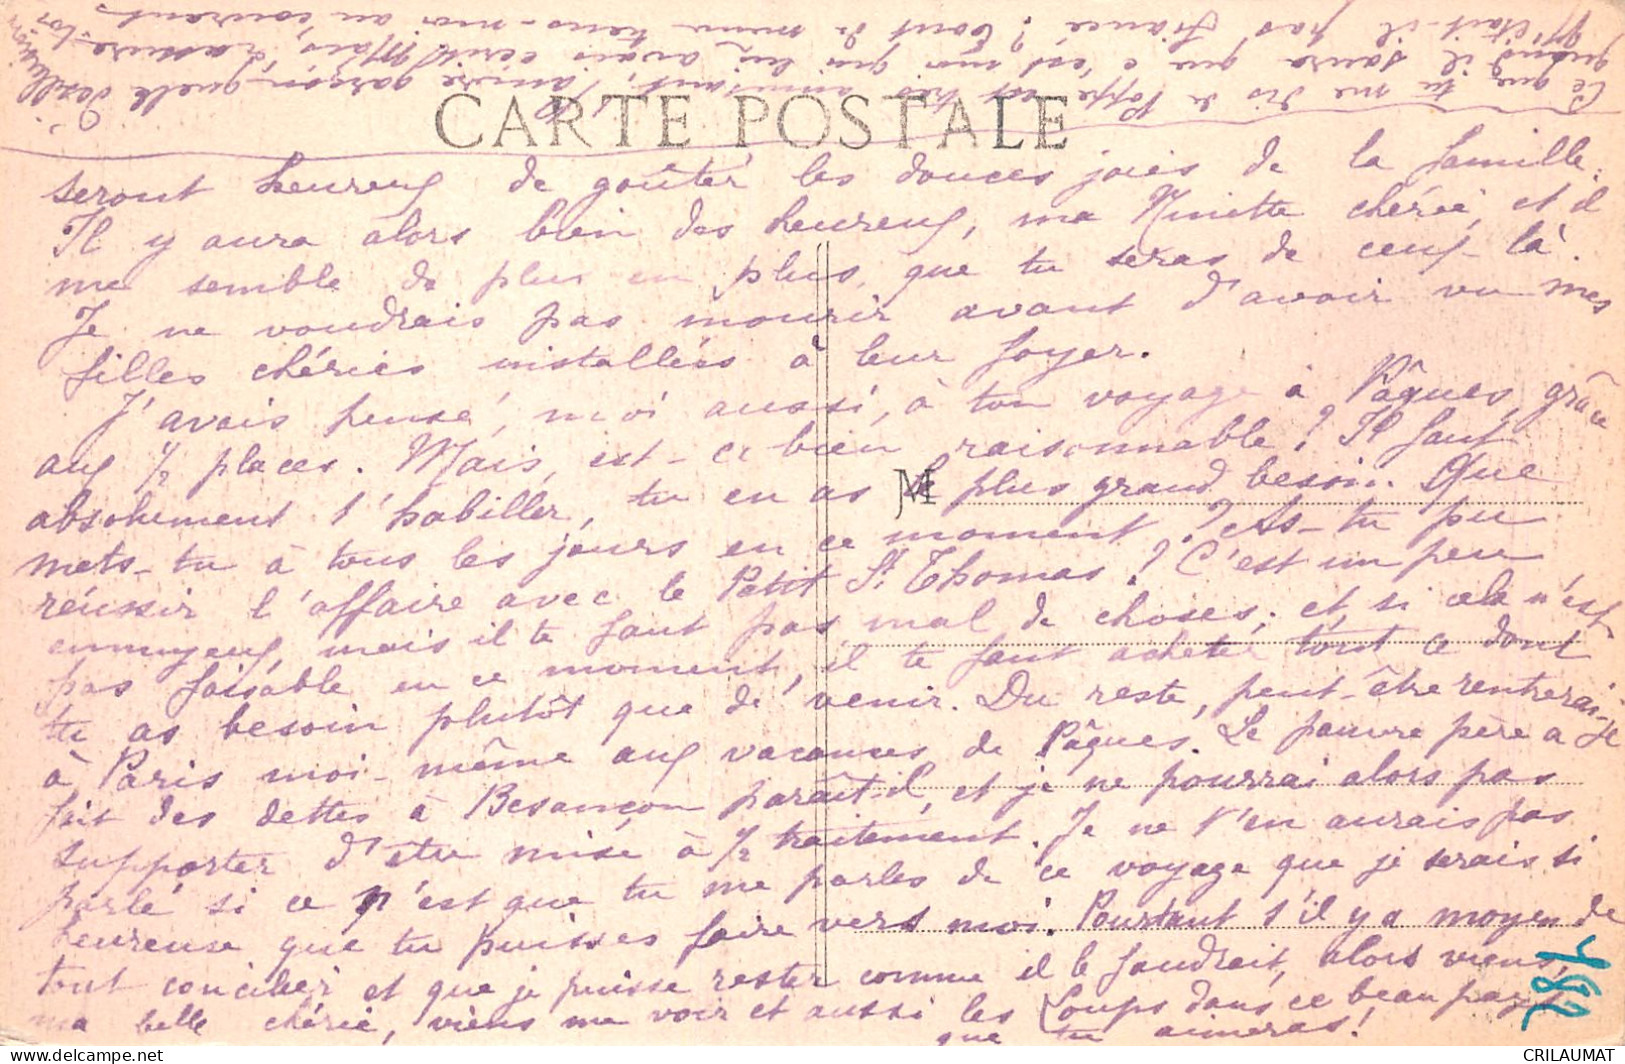 Ce que tu me dis de Poppe est très amusant, pauvre garçon, quelle désillusion
quand il saura que c'est moi qui lui avais écrit! Mais, rassure-toi
N'était-il pas fiancé? Tout de même tiens-moi au courant.
CARTE POSTALE
seront heureux de goûter les douces joies de la famille.
Il y aura alors bien des heureux, ma Ninette chérie, et il
me semble de plus en plus, que tu seras de ceux-là.
Je ne voudrais pas mourir avant d'avoir vu mes
filles chéries installées à leur foyer.
J'avais pensé, moi aussi, à ton voyage à Pâques, grâce
aux 1/2 places. Mais, est-ce bien raisonnable? Il faut
absolument t'habiller, tu en as le plus grand besoin. Que
mets-tu à tous les jours en ce moment? As-tu pu
réussir l'affaire avec le Petit St Thomas? C'est un peu
ennuyeux, mais il te faut pas mal de choses; et, si cela n'est
pas faisable en ce moment, il te faut acheter tout ce dont
tu as besoin plutôt que de venir. Du reste, peut-être rentrerai-je
à Paris moi-même aux vacances de Pâques. Le pauvre père a
fait des dettes à Besançon paraît-il, et je ne pourrai alors pas
supporter d'être mise à 1/2 traitement. Je ne t'en aurais pas
parlé si ce n'est que tu me parles de ce voyage que je serais si
heureuse que tu puisses faire vers moi. Pourtant s'il y a moyen de
tout concilier et que je puisse rester comme il le faudrait, alors viens,
ma belle chérie, viens me voir et aussi les Loups dans ce beau pays
que tu aimeras!
M
782
CRILAUMAT